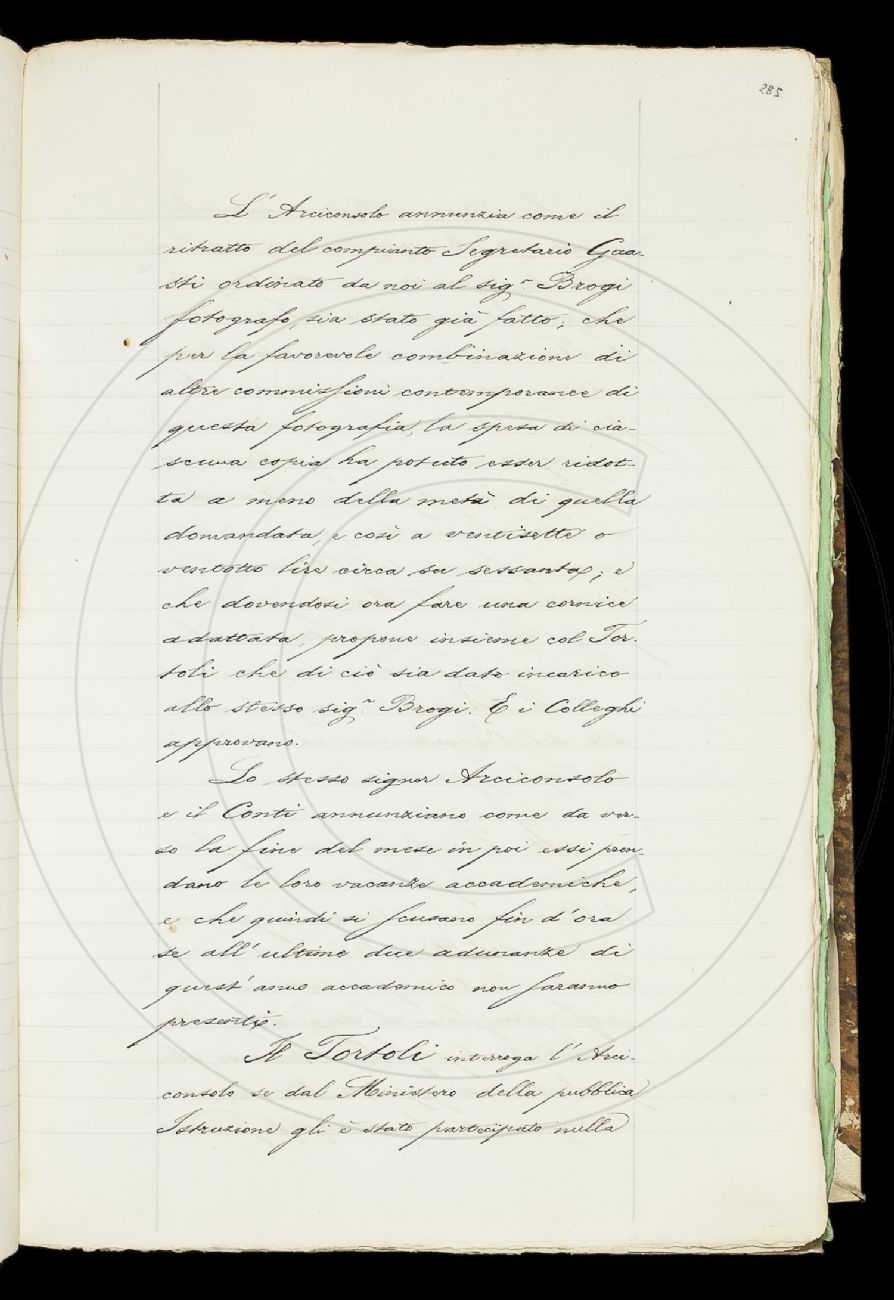 285
L' Arciconsolo annunzia come il
ritratto del compianto Segretario Gua-
sti ordinato da noi al sigr Brogi
fotografo, sia stato già fatto; che
per la favorevole combinazione di
altre commissioni contemporanee di
questa fotografia, la spesa di cia-
scuna copia ha potuto esser ridot-
ta a meno della metà di quella
domandata, e così a ventisette o
ventotto lire circa su sessanta; e
che dovendosi ora fare una cornice
adattata, propone insieme col Tor-
toli che di ciò sia dato incarico
allo stesso sigr Brogi. E i Colleghi
approvano.
Lo stesso signor Arciconsolo
e il Conti annunziano come da ver-
so la fine del mese in poi essi pren-
dano le loro vacanze accademiche,
e che quindi si scusano fin d'ora
se all' ultime due adunanze di
quest' anno accademico non saranno
presenti.
Il Tortoli interroga l' Arci-
consolo se dal Ministero della pubblica
Istruzione gli è stato partecipato nulla